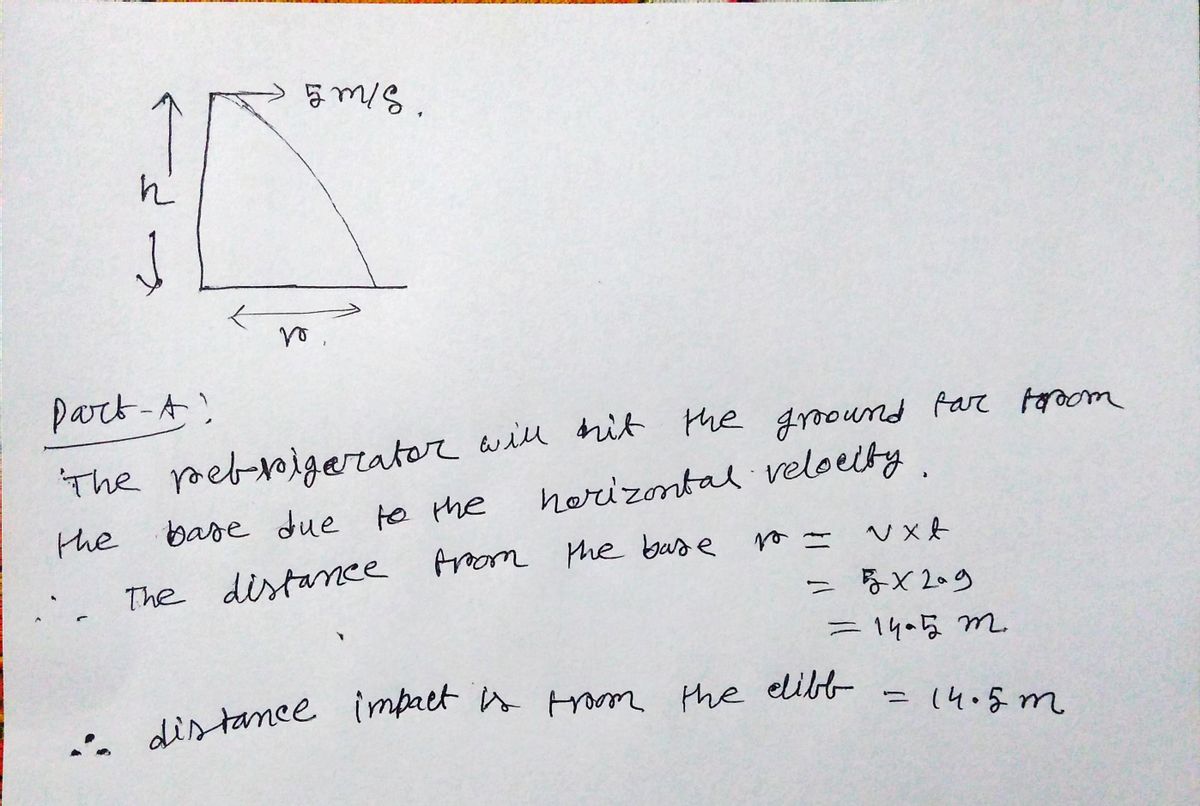 5 m/s.
h
r.
Part-A:
The refrigerator will hit the ground far from
the base due to the horizontal velocity.
∴ The distance from the base r = v×t
= 5×2.9
= 14.5 m.
∴ distance impact is from the cliff = 14.5 m